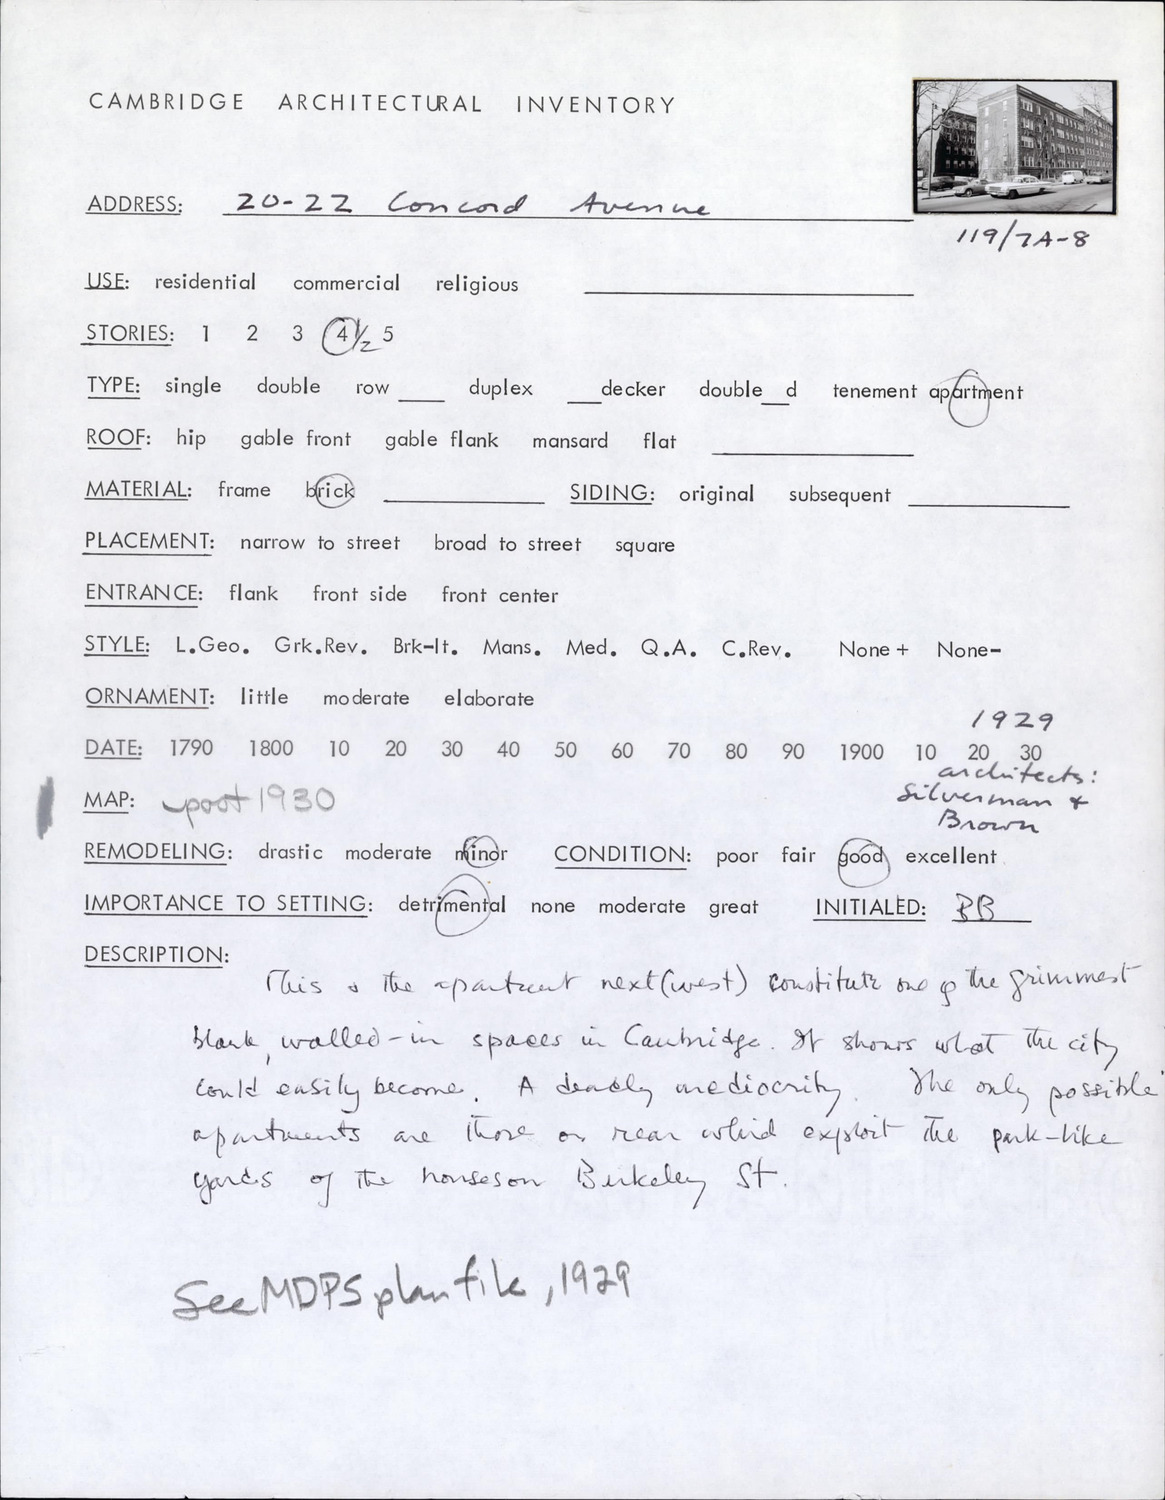 CAMBRIDGE ARCHITECTURAL INVENTORY
ADDRESS: 20-22 Concord Avenue
119/7A-8
USE: residential commercial religious
STORIES: 1 2 3 4 1/2 5
TYPE: single double row ____ duplex ___decker double__d tenement apartment
ROOF: hip gable front gable flank mansard flat
MATERIAL: frame brick SIDING: original subsequent
PLACEMENT: narrow to street broad to street square
ENTRANCE: flank front side front center
STYLE: L.Geo. Grk.Rev. Brk-It. Mans. Med. Q.A. C.Rev. None + None-
ORNAMENT: little moderate elaborate
1929
DATE: 1790 1800 10 20 30 40 50 60 70 80 90 1900 10 20 30
architects:
Silverman +
Brown
MAP: post 1930
REMODELING: drastic moderate minor CONDITION: poor fair good excellent
IMPORTANCE TO SETTING: detrimental none moderate great INITIALED: BB
DESCRIPTION:
This & the apartment next (west) constitute one of the grimmest
blank, walled-in spaces in Cambridge. It shows what the city
could easily become. A deadly mediocrity. The only possible
apartments are those on rear which exploit the park-like
yards of the houses on Berkeley St.
See MDPS plan file, 1929